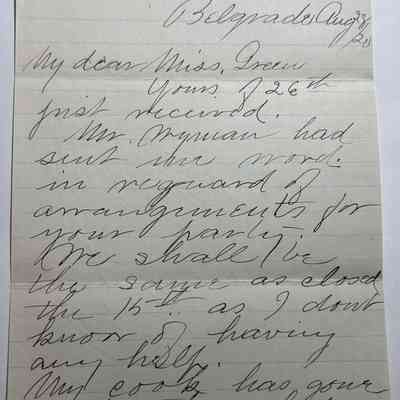 Belgrade Aug 28
/20
My dear Miss. Green
Yours of 26th
just received.
Mr. Wyman had
sent me word.
in reguard of
arrangements for
your party.
We shall be
the same as closed
the 15th. as I dont
know of having
any help.
My cook has gone